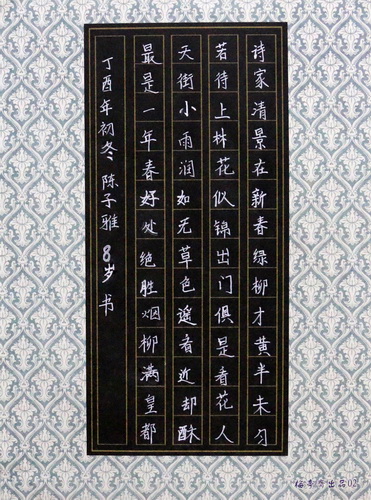 诗家清景在新春绿柳才黄半未匀
若待上林花似锦出门俱是看花人
天街小雨润如无草色遥看近却酥
最是一年春好处绝胜烟柳满皇都
丁酉年初冬 陈子雅 8岁 书
出品02